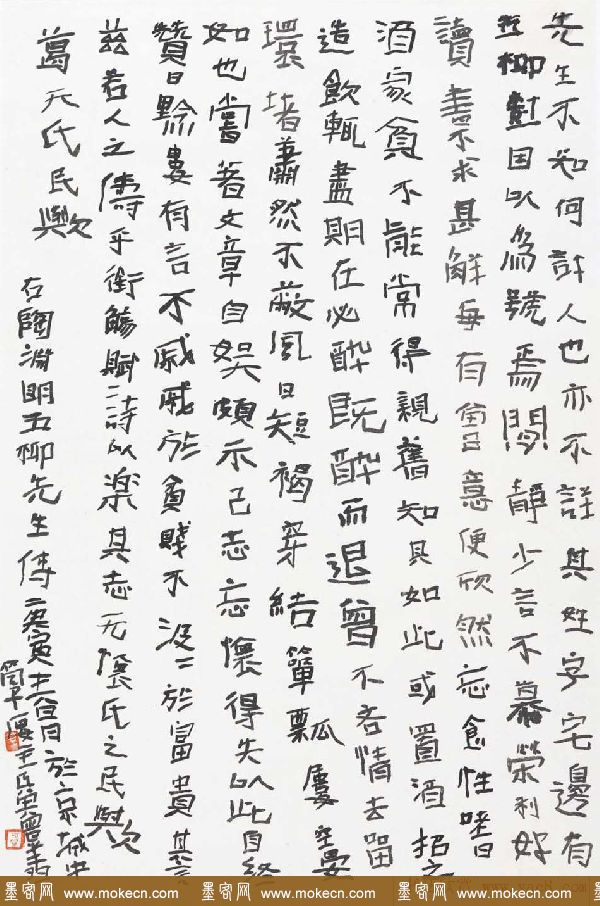 先生不知何許人也亦不詳其姓字宅邊有
五柳樹因以爲號焉閑靜少言不慕榮利好
讀書不求甚解每有會意便欣然忘食性嗜
酒家貧不能常得親舊知其如此或置酒招之
造飲輒盡期在必醉既醉而退曾不吝情去留
環堵蕭然不蔽風日短褐穿結簞瓢屢空晏
如也嘗著文章自娛頗示己志忘懷得失以此自終
贊曰黔婁有言不戚戚於貧賤不汲汲於富貴其言
茲若人之儔乎銜觴賦詩以樂其志無懷氏之民歟
葛天氏民歟
右陶淵明五柳先生傳 庚寅 於京城中
墨客网 www.mokecn.com 墨客网 www.mokecn.com 墨客网 www.mokecn.com